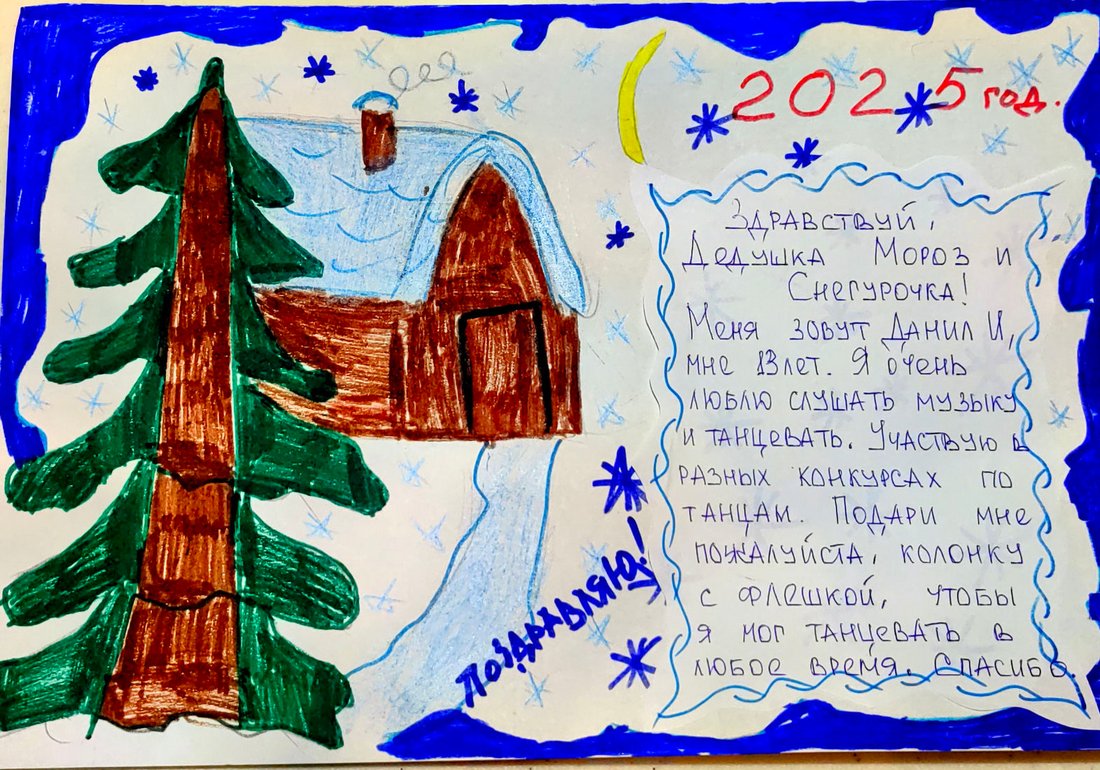 2025 год.
Здравствуй,
Дедушка Мороз и
Снегурочка!
Меня зовут Данил И,
мне 13 лет. Я очень
люблю слушать музыку
и танцевать. Участвую в
разных конкурсах по
танцам. Подари мне
пожалуйста, колонку
с флешкой, чтобы
я мог танцевать в
любое время. Спасибо.
Поздравляю!